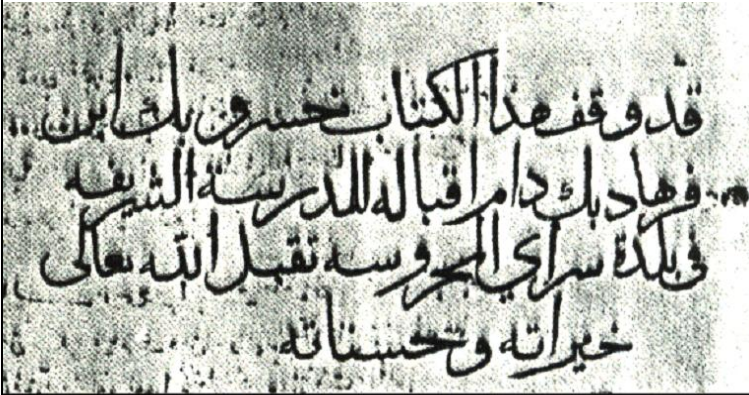 قد وقف هذا الكتاب خسرو بك ابن
فرهاد بك دام اقباله للمدرسة الشريفه
فى بلدة سراي المحروسه تقبل الله تعالى
خيراته وحسناته